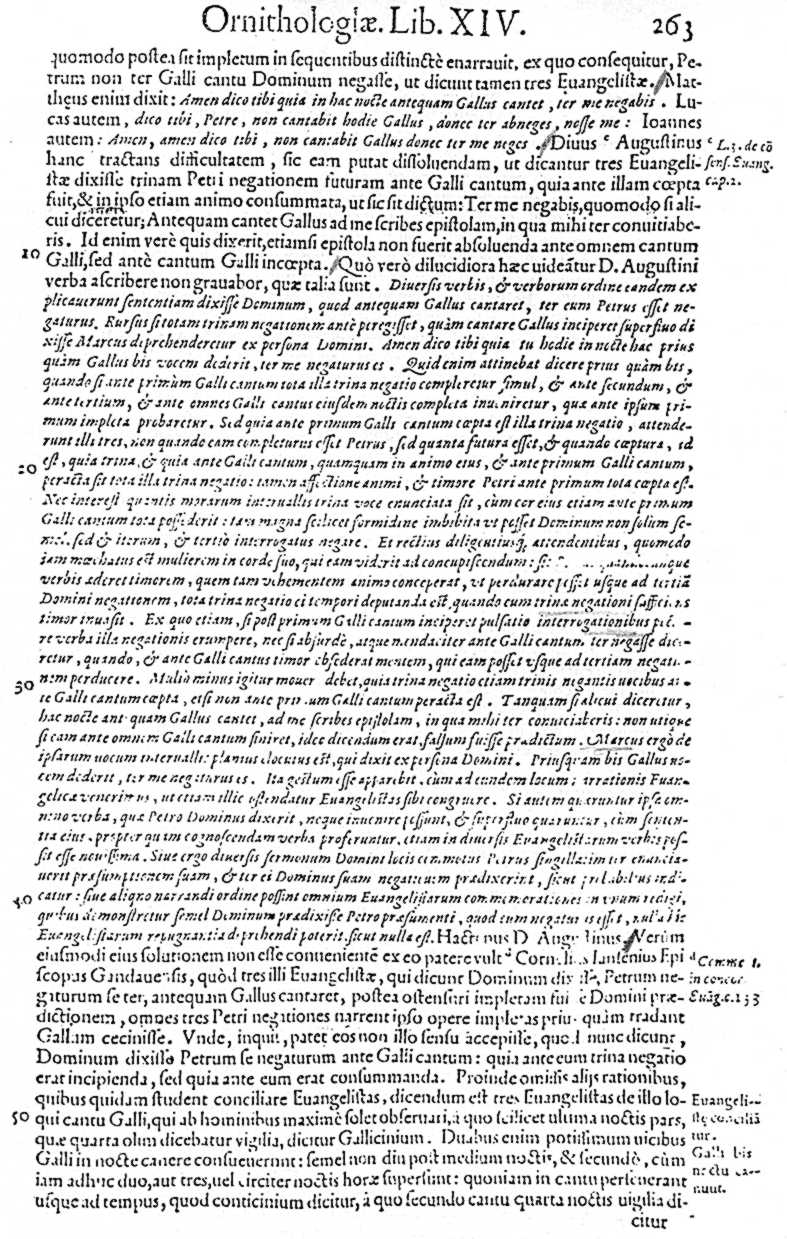 Ornithologiæ. Lib. XIV. 263
quomodo postea sit impletum in sequentibus distinctè enarrauit, ex quo consequitur, Pe-
trum non ter Galli cantu Dominum negasse, ut dicunt tamen tres Euangelistæ. Mat-
thęus enim dixit: Amen dico tibi quia in hac nocte antequam Gallus cantet, ter me negabis. Lu-
cas autem, dico tibi, Petre, non cantabit hodie Gallus, donec ter abneges, nosse me: Ioannes
autem: Amen, amen dico tibi, non cantabit Gallus donec ter me neges. Diuus c Augustinus
c L.3. de cō
hanc tractans difficultatem, sic eam putat dissoluendam, ut dicantur tres Euangeli-
sens. Euang.
stæ dixisse trinam Petri negationem futuram ante Galli cantum, quia ante illam cœpta
cap.2.
fuit, & in ipso etiam animo consummata, ut sic sit dictum: Ter me negabis, quomodo si ali-
cui diceretur; Antequam cantet Gallus ad me scribes epistolam, in qua mihi ter conuitiabe-
ris. Id enim verè quis dixerit, etiamsi epistola non fuerit absoluenda ante omnem cantum
10 Galli, sed antè cantum Galli incœpta. Quò verò dilucidiora hæc uideātur D. Augustini
verba ascribere non grauabor, quæ talia sunt. Diuersis verbis, & verborum ordine eandem ex
plicauerunt sententiam dixisse Dominum, quod antequam Gallus cantaret, ter eum Petrus esset ne-
gaturus. Rursus si totam trinam negationem antè peregisset, quàm cantare Gallus inciperet superfluo di
xisse Marcus deprehenderetur ex persona Domini. Amen dico tibi quia tu hodie in nocte hac prius
quàm Gallus bis vocem dederit, ter me negaturus es. Quid enim attinebat dicere prius quàm bis,
quando si ante primùm Galli cantum tota illa trina negatio compleretur simul, & ante secundum, &
ante tertium, & ante omnes Galli cantus eiusdem noctis completa inueniretur, quæ ante ipsum pri-
mum impleta probaretur. Sed quia ante primum Galli cantum cœpta est illa trina negatio, attende-
runt illi tres, non quando eam completurus esset Petrus, sed quanta futura esset, & quando cœptura, id
20 est, quia trina, & quia ante Galli cantum, quamquam in animo eius, & ante primum Galli cantum,
peracta sit tota illa trina negatio: tamen affectione animi, & timore Petri ante primum tota cœpta est.
Nec interest quantis morarum interuallis trina voce enunciata sit, cùm cor eius etiam ante primum
Galli cantum tota possederit: tam magna scilicet formidine imbibita vt posset Dominum non solum se-
mel, sed & iterum, & tertiò interrogatus negare. Et rectius diligentiusq́; attendentibus, quomodo
iam mœchatus est mulierem in corde suo, qui eam viderit ad concupiscendum:
verbis ederet timorem, quem tam vehementem animo conceperat, vt perdurare posset usque ad tertiā
Domini negationem, tota trina negatio ei tempori deputanda est, quando eum trinæ negationi sufficiens
timor inuasit. Ex quo etiam, si post primum Galli cantum inciperet pulsatio interrogationibus
re verba illa negationis erumpere, nec si absurdè, atque mendaciter ante Galli cantum ter negasse dice-
retur, quando, & ante Galli cantus timor obsederat mentem, qui eam posset vsque ad tertiam negatio-
30 nem perducere. Multò minus igitur mouer debet, quia trina negatio etiam trinis negantis uocibus an-
te Galli cantum cœpta, etsi non ante primum Galli cantum peracta est. Tanquam si alicui diceretur,
hac nocte antequam Gallus cantet, ad me scribes epistolam, in qua mihi ter conuiciaberis: non utique
si eam ante omnem Galli cantum finiret, ideo dicendum erat, falsum fuisse prædictum. Marcus ergò de
ipsarum uocum interuallis planius elocutus est, qui dixit ex persona Domini. Priusquam bis Gallus uo-
cem dederit, ter me negaturus es. Ita gestum esse apparebit, cùm ad eundem locum narrationis Euan-
gelicæ venerimus, ut etiam illic ostendatur Euangelistas sibi congruere. Si autem quæruntur ipsa om-
nino verba, quæ Petro Dominus dixerit, neque inuenire possunt, & superfluo quæruntur, cùm senten-
tia eius, propter quam cognoscendam verba proferuntur, etiam in diuersis Euangelistarum verbis pos-
sit esse notissima. Siue ergo diuersis sermonum Domini locis commotus Petrus singillatim ter enuncia-
uerit præsumptionem suam, & ter ei Dominus suam negationem prædixerit, sicut probabilius indi-
40 catur: siue aliquo narrandi ordine possint omnium Euangelistarum commemorationes in vnum redigi,
quibus demonstretur semel Dominum prædixisse Petro præsumenti, quod eum negaturus esset, nulla hic
Euangelistarum repugnantia deprehendi poterit, sicut nulla est. Hactenus D. Augustinus. Verùm
eiusmodi eius solutionem non esse conuenientē ex eo patere vult d Cornelius Iansenius Epi
d Comme t.
scopus Gandauensis, quòd tres illi Euangelistæ, qui dicunt Dominum dixisse, Petrum ne-
in concor.
giturum se ter, antequam Gallus cantaret, postea ostensuri impletam fuisse Domini præ-
Euāg.c.133
dictionem, omnes tres Petri negationes narrent ipso opere impletas priusquàm tradant
Gallum cecinisse. Vnde, inquit, patet eos non illo sensu accepisse, quod nunc dicunt,
Dominum dixisse Petrum se negaturum ante Galli cantum: quia ante eum trina negatio
erat incipienda, sed quia ante eum erat consummanda. Proinde omissis alijs rationibus,
quibus quidam student conciliare Euangelistas, dicendum est tres Euangelistas de illo lo-
Euangeli-
50 qui cantu Galli, qui ab hominibus maximè solet obseruari, à quo scilicet ultima noctis pars,
stę conciliā
quæ quarta olim dicebatur vigilia, dicitur Gallicinium. Duabus enim potissimum uicibus
tur.
Galli in nocte canere consueuerunt: semel non diu post medium noctis, & secundò, cùm
Galli bis
iam adhuc duo, aut tres, uel circiter noctis horæ supersunt: quoniam in cantu perseuerant
noctu ca-
usque ad tempus, quod conticinium dicitur, à quo secundo cantu quarta noctis uigilia di-
nunt.
citur